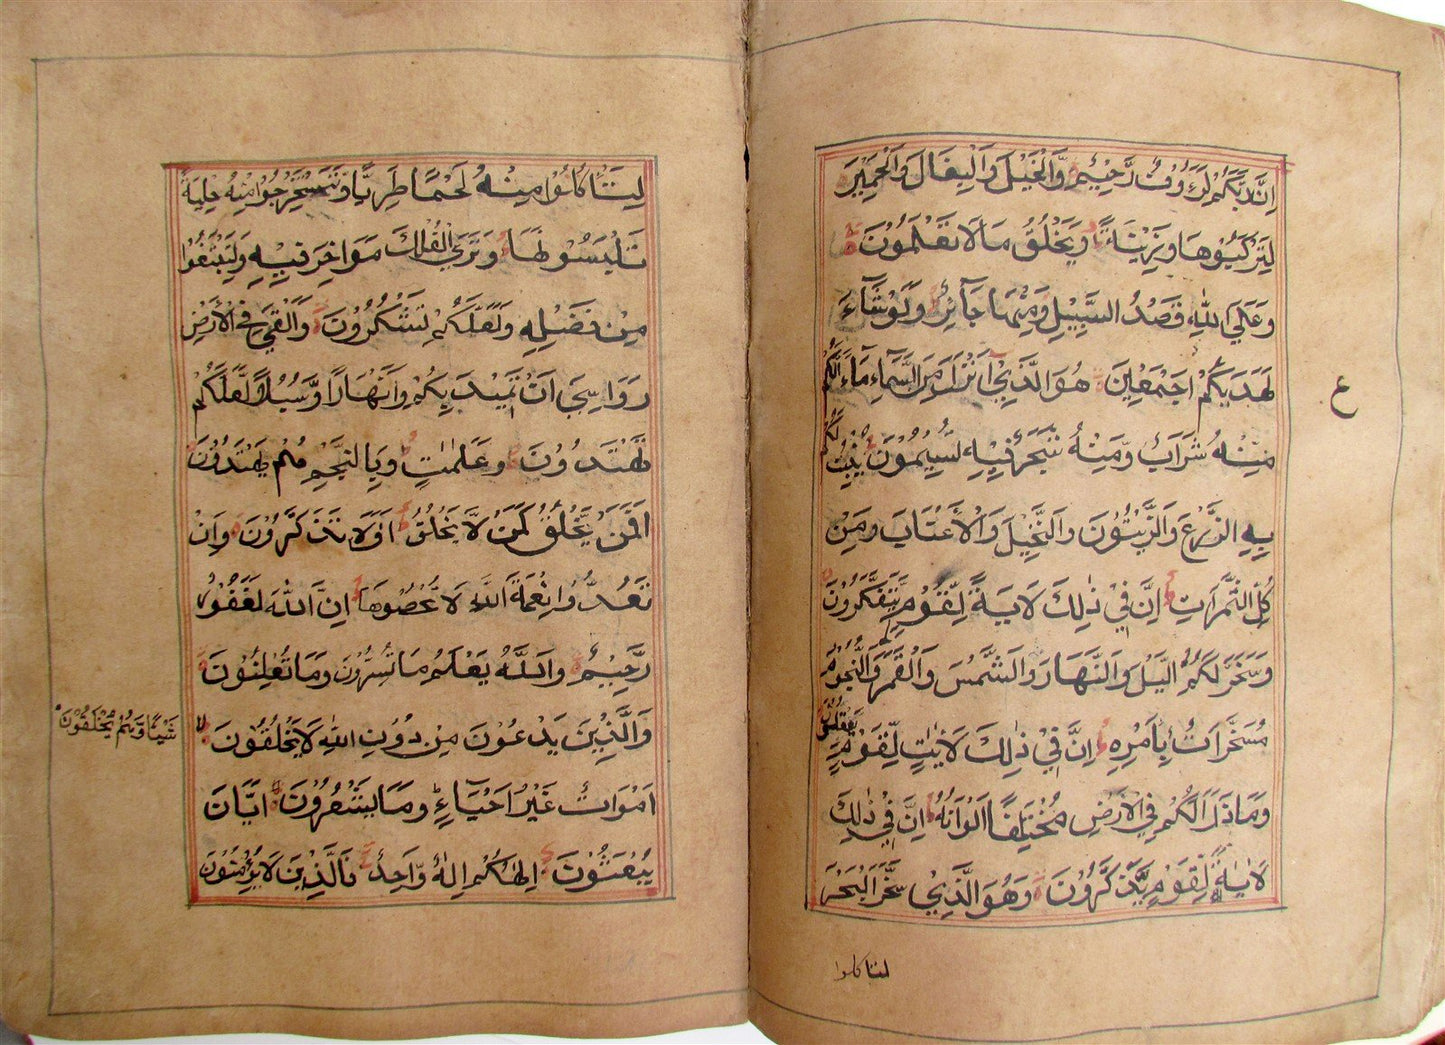 اِنَّ رَبَّكُمْ لَرَؤُوْفٌ رَّحِيْمٌ وَّالْخَيْلَ وَالْبِغَالَ وَالْحَمِيْرَ
لِتَرْكَبُوْهَا وَزِيْنَةً وَيَخْلُقُ مَا لَا تَعْلَمُوْنَ
وَعَلَى اللهِ قَصْدُ السَّبِيْلِ وَمِنْهَا جَآئِرٌ وَلَوْ شَآءَ
لَهَدَيكُمْ اَجْمَعِيْنَ هُوَ الَّذِيْ اَنْزَلَ مِنَ السَّمَآءِ مَآءً لَّكُمْ
ع
مِنْهُ شَرَابٌ وَّمِنْهُ شَجَرٌ فِيْهِ تُسِيْمُوْنَ يُنْبِتُ لَكُمْ
بِهِ الزَّرْعَ وَالزَّيْتُوْنَ وَالنَّخِيْلَ وَالْاَعْنَابَ وَمِنْ
كُلِّ الثَّمَرٰتِ اِنَّ فِيْ ذٰلِكَ لَاٰيَةً لِّقَوْمٍ يَّتَفَكَّرُوْنَ
وَسَخَّرَ لَكُمُ الَّيْلَ وَالنَّهَارَ وَالشَّمْسَ وَالْقَمَرَ وَالنُّجُوْمُ
مُسَخَّرَاتٌ بِاَمْرِهٖ اِنَّ فِيْ ذٰلِكَ لَاٰيٰتٍ لِّقَوْمٍ يَّعْقِلُوْنَ
وَمَا ذَرَاَ لَكُمْ فِي الْاَرْضِ مُخْتَلِفًا اَلْوَانُهٗ اِنَّ فِيْ ذٰلِكَ
لَاٰيَةً لِّقَوْمٍ يَّذَّكَّرُوْنَ وَهُوَ الَّذِيْ سَخَّرَ الْبَحْرَ
لتاكلوا
لِتَاْكُلُوْا مِنْهُ لَحْمًا طَرِيًّا وَّتَسْتَخْرِجُوْا مِنْهُ حِلْيَةً
تَلْبَسُوْنَهَا وَتَرَى الْفُلْكَ مَوَاخِرَ فِيْهِ وَلِتَبْتَغُوْا
مِنْ فَضْلِهٖ وَلَعَلَّكُمْ تَشْكُرُوْنَ وَاَلْقٰى فِي الْاَرْضِ
رَوَاسِيَ اَنْ تَمِيْدَ بِكُمْ وَاَنْهَارًا وَّسُبُلًا لَّعَلَّكُمْ
تَهْتَدُوْنَ وَعَلٰمٰتٍ وَبِالنَّجْمِ هُمْ يَهْتَدُوْنَ
اَفَمَنْ يَّخْلُقُ كَمَنْ لَّا يَخْلُقُ اَفَلَا تَذَكَّرُوْنَ وَاِنْ
تَعُدُّوْا نِعْمَةَ اللهِ لَا تُحْصُوْهَا اِنَّ اللهَ لَغَفُوْرٌ
رَّحِيْمٌ وَاللهُ يَعْلَمُ مَا تُسِرُّوْنَ وَمَا تُعْلِنُوْنَ
وَالَّذِيْنَ يَدْعُوْنَ مِنْ دُوْنِ اللهِ لَا يَخْلُقُوْنَ
شَيْئًا وَّهُمْ يُخْلَقُوْنَ
اَمْوَاتٌ غَيْرُ اَحْيَآءٍ وَمَا يَشْعُرُوْنَ اَيَّانَ
يُبْعَثُوْنَ اِلٰهُكُمْ اِلٰهٌ وَّاحِدٌ فَالَّذِيْنَ لَا يُؤْمِنُوْنَ